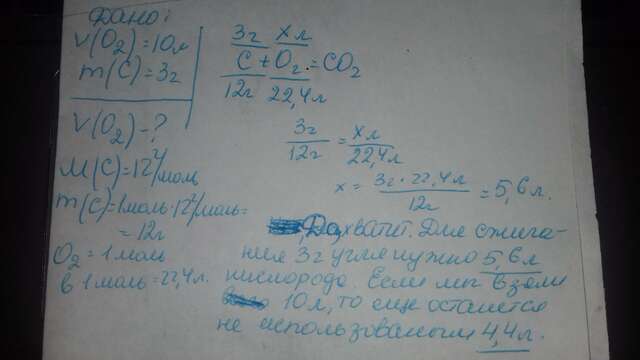 Дано:
V(O₂)=10л
m(C)=3г
V(O₂)-?
M(C)=12г/моль
m(C)=1моль·12г/моль=
=12г
O₂=1моль
в 1 моль=22,4л.
3г хл
C+O₂=CO₂
12г 22,4л
3г/12г = хл/22,4л
x = 3г·22,4л/12г = 5,6л.
Да, хватит. Для сжига-
ния 3г угля нужно 5,6л
кислорода. Если мы взяли
10л, то еще останется
не использованым 4,4л.